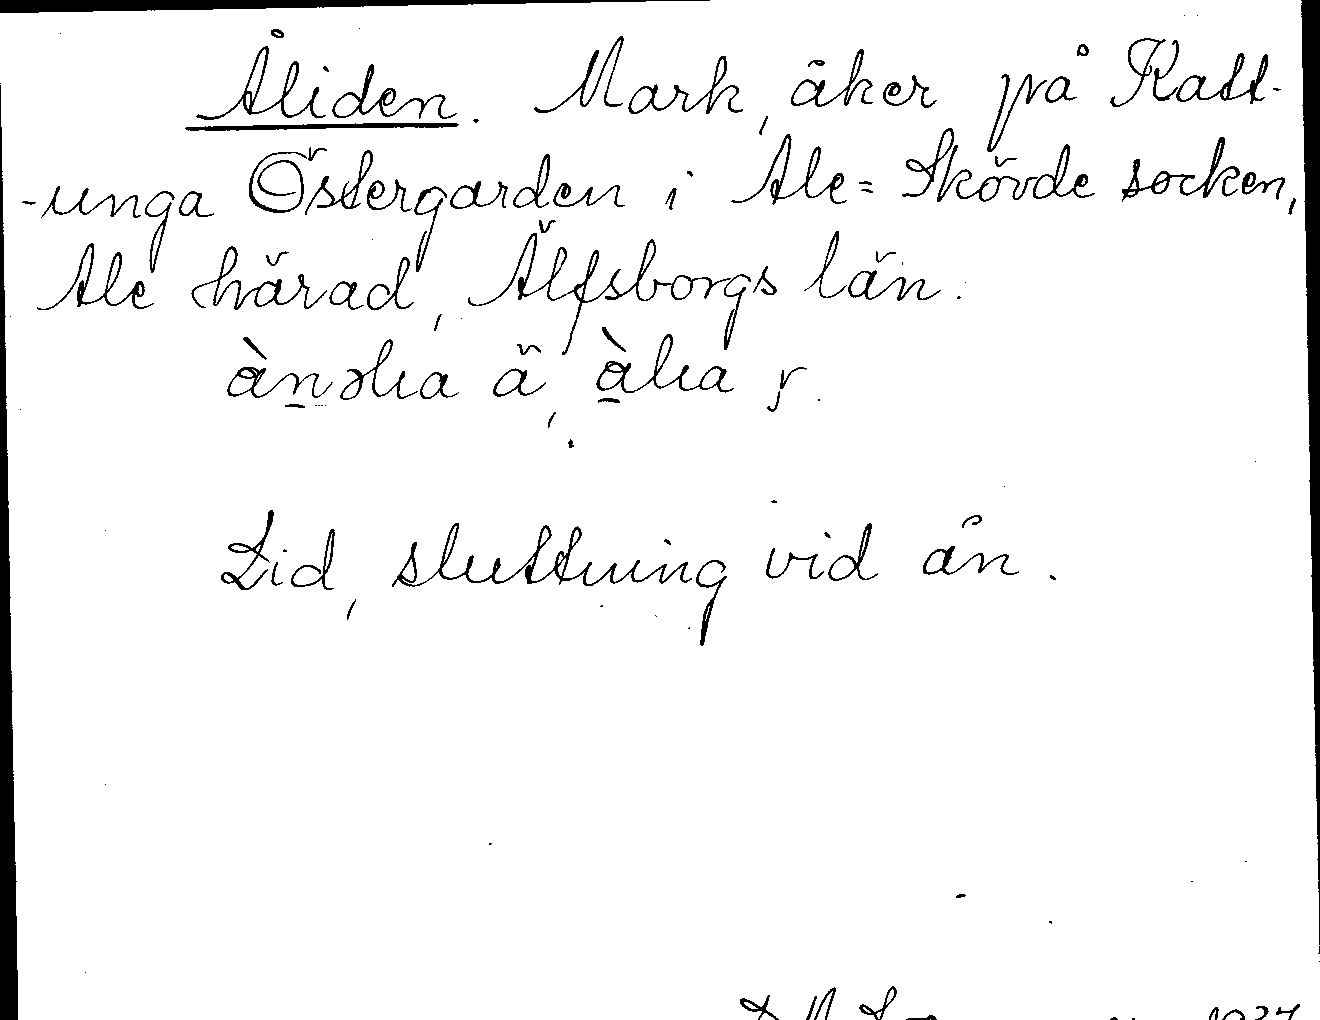 Åliden. Mark, åker på Katt-
-unga Östergården i Ale=Skövde socken,
Ale härad, Älfsborgs län.
Lid, sluttning vid ån.